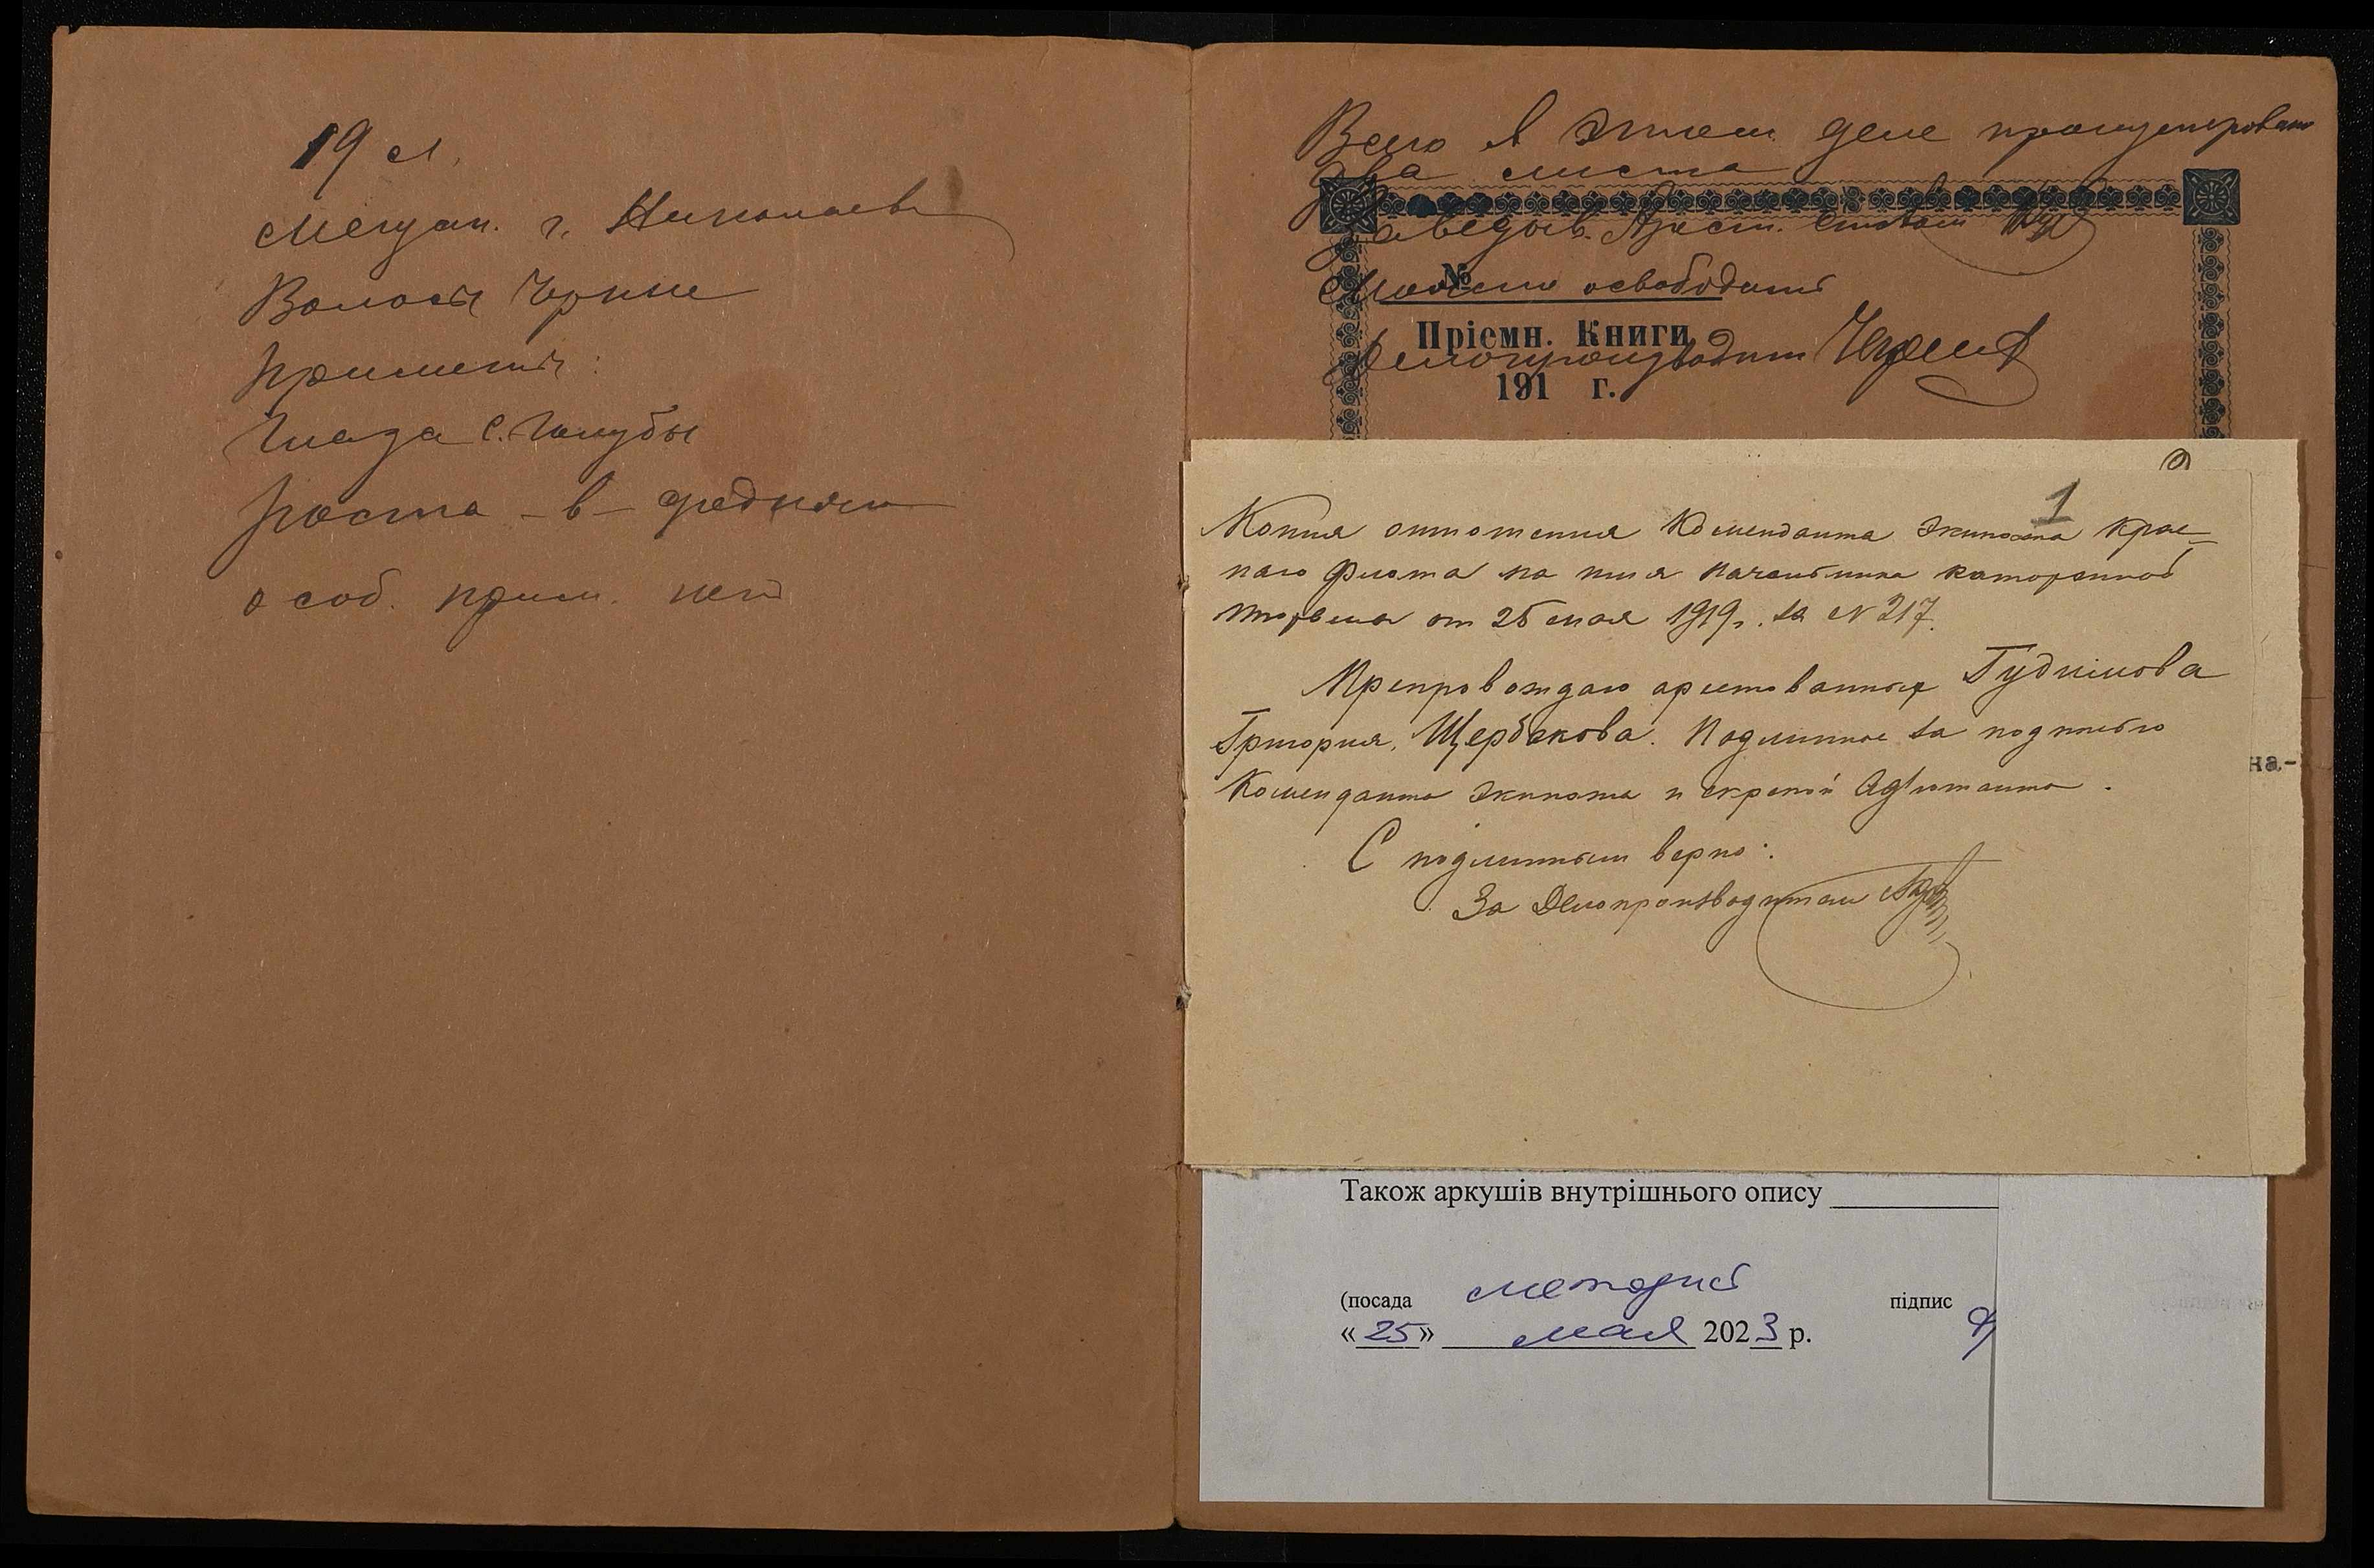 19 л.
Мещан. г. Николаев
Волосы черные
приметы:
Глаза с. голубы
роста – в – средняго
особ. прим. нет
Всего в этом деле пронумеровано
два листа
Заведыв. Арест. столом
Можно освободить
№
Пріемн. Книги
Делопроизводит
191 г.
1
Копия отношения Коменданта Экипажа Крас-
наго Флота на имя Начальника каторжной
тюрьмы от 25 мая 1919 г. за № 217.
Препровождаю арестованных Гудимова
Григория, Щербакова. Подлинное за подписью
Коменданта Экипажа и скрепой Адъютанта.
С подлинным верно:
За Делопроизводителя
на-
Також аркушів внутрішнього опису
(посада методист підпис
« 25 » мая 2023 р.